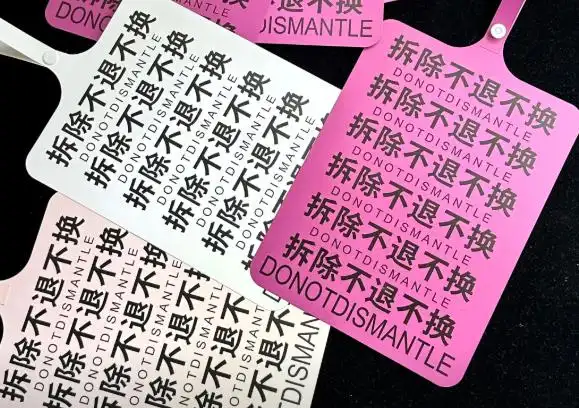 DONOTDISMANTLE
DONOTDISMANTLE
拆除不退不换
DONOTDISMANTLE
拆除不退不换
DONOTDISMANTLE
拆除不退不换
DONOTDISMANTLE
拆除不退不换
DONOTDISMANTLE
拆除不退不换
DONOTDISMANTLE
拆除不退不换
DONOTDISMANTLE
拆除不退不换
DONOTDISMANTLE
拆除不退不换
DONOTDISMANTLE
拆除不退不换
DONOTDISMANTLE
拆除不退不换
DONOTDISMANTLE
拆除不退不换
DONOTDISMANTLE
拆除不退不换
DONOTDISMANTLE
拆除不退不换
DONOTDISMANTLE